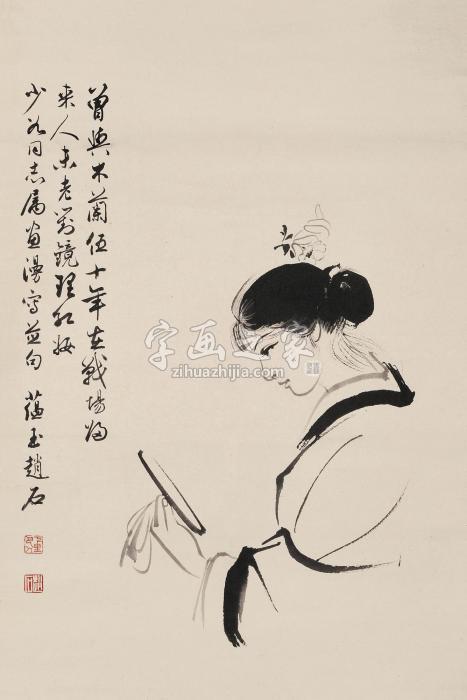 曾與木蘭伍十年在戰場归
来人未老對鏡理红妝
少同志属畫漫寫並句 蕴玉趙石
字画之家
zihuazhijia.com